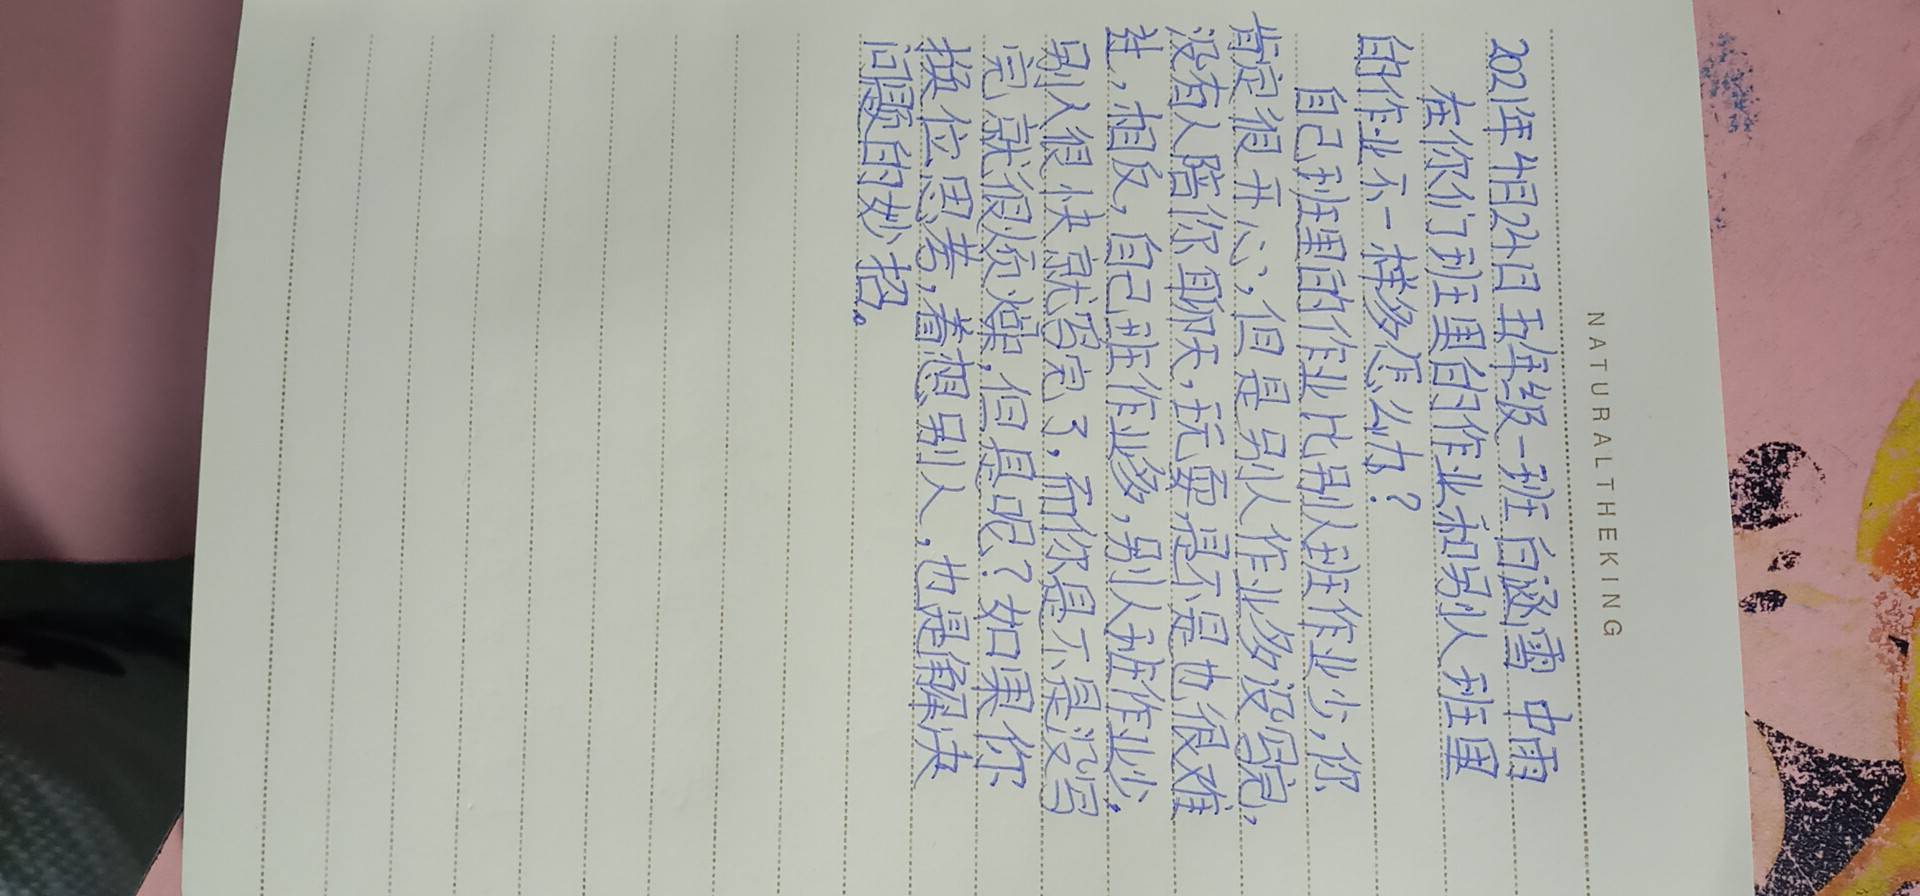 NATURALTHEKING
2021年4月24日五年级一班白涵雪 中雨
在你们班里的作业和别人班里
的作业不一样多怎么办?
自己班里的作业比别人班作业少,你
肯定很开心,但是别人作业多没写完,
没有人陪你聊天,玩耍,是不是也很难
过,相反,自己班作业多,别人班作业少,
别人很快就写完了,而你是不是没写
完就很烦燥,但是呢?如果你
换位思考,着想别人,也是解决
问题的妙招。